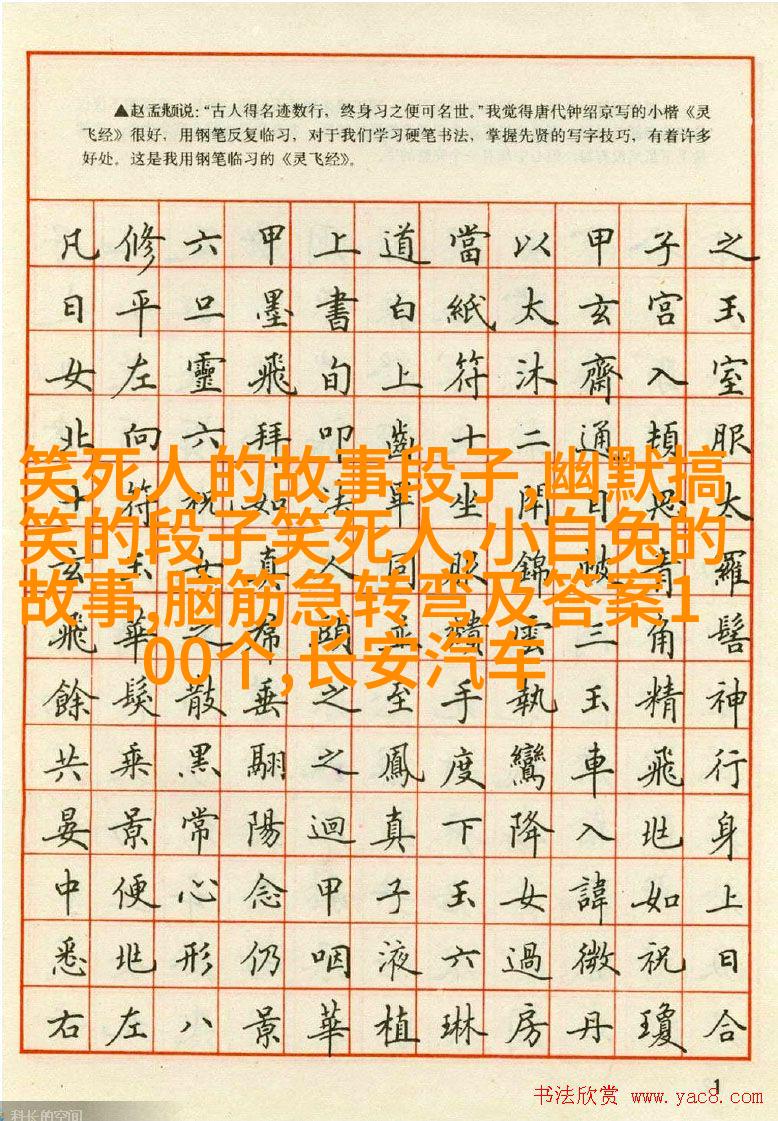 ▲赵孟頫说:“古人得名迹数行,终身习之便可名世。”我觉得唐代钟绍京写的小楷《灵
飞经》很好,用钢笔反复临习,对于我们学习硬笔书法,掌握先贤的写字技巧,有着许多
好处。这是我用钢笔临习的《灵飞经》。
凡修六甲上道當以甲子之
日平旦墨書白紙太玄宮玉
女左靈飛旬上符沐齋入室
北向六拜叩齒十二通頓服
十符祝如法畢坐開日思太
玄玉女真人同服錦帔青羅
飛華之帬頤並頹雲三角髻
餘髮散垂之至手執玉精神
共乘黑翮之鳳度鸞車飛行
晏景常陽迴真下降入兆身
中便心念甲子玉女諱如上
悉兆形仍咽液六過微祝曰
右左八景華植琳房丹瓊合
笑死人的故事段子 幽默搞
笑的段子笑死人,小白兔的
故事,脑筋急转弯及答案1
00个,长安汽车
1
书法欣赏 www.yac8.com
科长的空间